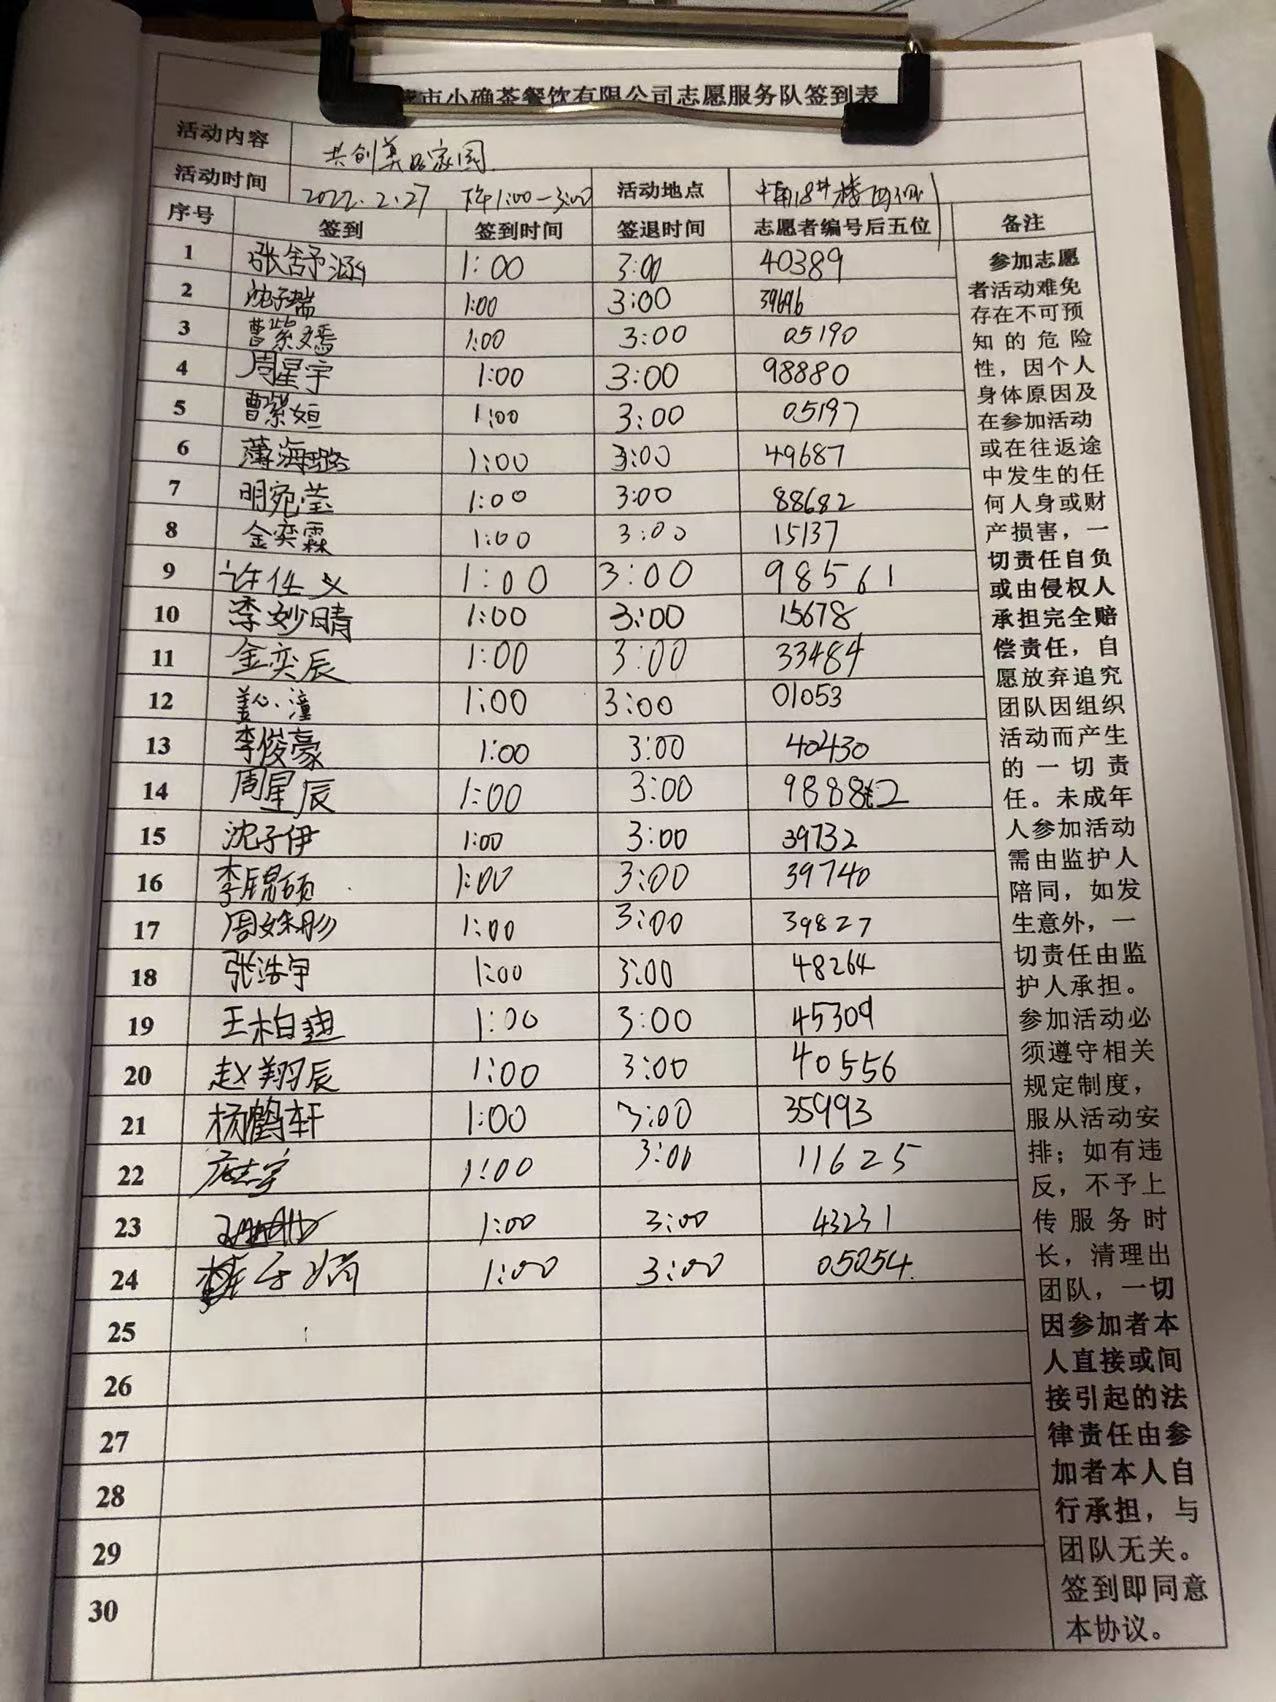 市小确茶餐饮有限公司志愿服务队签到表
活动内容 共创美好家园
活动时间 2022.2.27 下午1:00-3:00 活动地点 中南18#楼
序号 签到 签到时间 签退时间 志愿者编号后五位 备注
1 张舒涵 1:00 3:00 40389
2 沈子瑞 1:00 3:00 39696
3 曹紫嫣 1:00 3:00 05190
4 周星宇 1:00 3:00 98880
5 曹紫姮 1:00 3:00 05197
6 薄海璐 1:00 3:00 49687
7 明宛莹 1:00 3:00 88682
8 金奕霖 1:00 3:00 15137
9 许仕义 1:00 3:00 98561
10 李妙晴 1:00 3:00 15678
11 金奕辰 1:00 3:00 33484
12 姜心潼 1:00 3:00 01053
13 李俊豪 1:00 3:00 40430
14 周星辰 1:00 3:00 98882
15 沈子伊 1:00 3:00 39732
16 李锦硕 1:00 3:00 39740
17 周姝彤 1:00 3:00 39827
18 张浩宇 1:00 3:00 48264
19 王柏迪 1:00 3:00 45309
20 赵翔辰 1:00 3:00 40556
21 杨鹤轩 1:00 3:00 35993
22 1:00 3:00 11625
23 1:00 3:00 43231
24 1:00 3:00 05054
25
26
27
28
29
30
参加志愿
者活动难免
存在不可预
知的危险
性，因个人
身体原因及
在参加活动
或在往返途
中发生的任
何人身或财
产损害，一
切责任自负
或由侵权人
承担完全赔
偿责任，自
愿放弃追究
团队因组织
活动而产生
的一切责
任。未成年
人参加活动
需由监护人
陪同，如发
生意外，一
切责任由监
护人承担。
参加活动必
须遵守相关
规定制度，
服从活动安
排；如有违
反，不予上
传服务时
长，清理出
团队，一切
因参加者本
人直接或间
接引起的法
律责任由参
加者本人自
行承担，与
团队无关。
签到即同意
本协议。